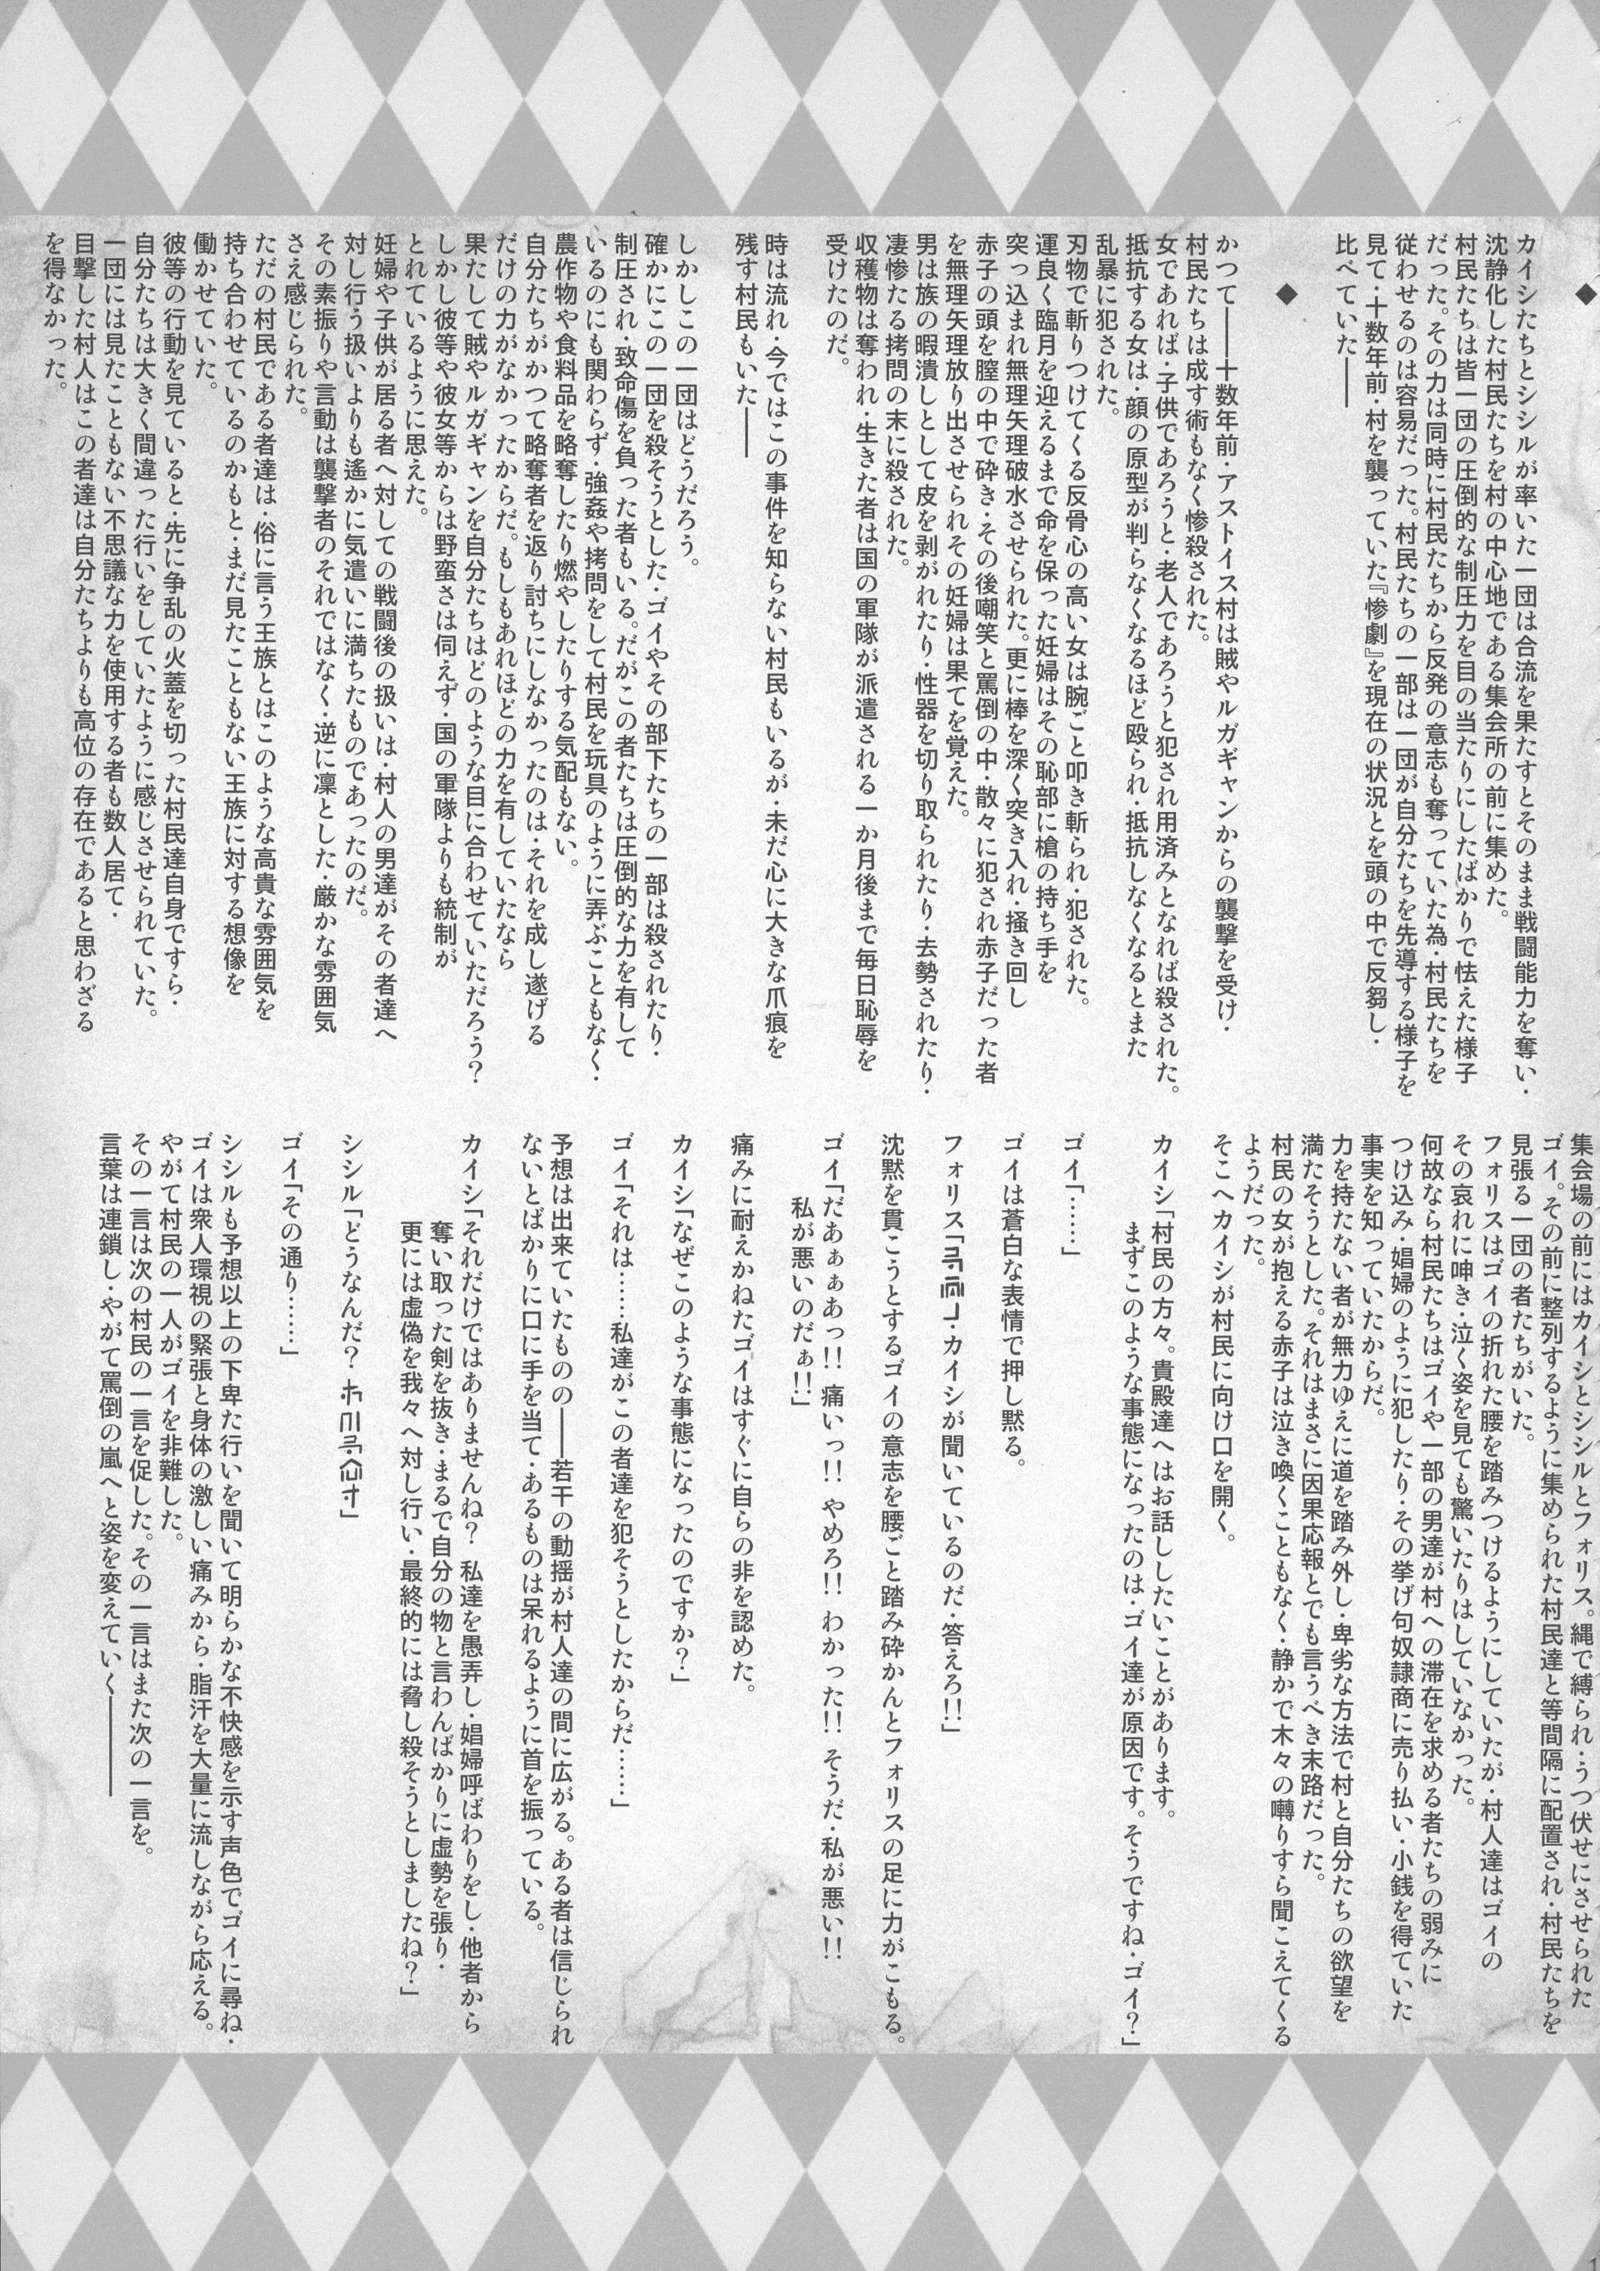 ◆
カイシたちとシシルが率いた一団は合流を果たすとそのまま戦闘能力を奪い・
沈静化した村民たちを村の中心地である集会所の前に集めた。
村民たちは皆一団の圧倒的な制圧力を目の当たりにしたばかりで怯えた様子
だった。その力は同時に村民たちから反発の意志も奪っていた為・村民たちを
従わせるのは容易だった。村民たちの一部は一団が自分たちを先導する様子を
見て・十数年前・村を襲っていた『惨劇』を現在の状況とを頭の中で反芻し・
比べていた――
◆
かつて――十数年前・アストイス村は賊やルガギャンからの襲撃を受け・
村民たちは成す術もなく惨殺された。
女であれば・子供であろうと・老人であろうと犯され用済みとなれば殺された。
抵抗する女は・顔の原型が判らなくなるほど殴られ・抵抗しなくなるとまた
乱暴に犯された。
刃物で斬りつけてくる反骨心の高い女は腕ごと叩き斬られ・犯された。
運良く臨月を迎えるまで命を保った妊婦はその恥部に槍の持ち手を
突っ込まれ無理矢理破水させられた。更に棒を深く突き入れ・掻き回し
赤子の頭を膣の中で砕き・その後嘲笑と罵倒の中・散々に犯され赤子だった者
を無理矢理放り出させられその妊婦は果てを覚えた。
男は族の暇潰しとして皮を剥がれたり・性器を切り取られたり・去勢されたり・
凄惨たる拷問の末に殺された。
収穫物は奪われ・生きた者は国の軍隊が派遣される一か月後まで毎日恥辱を
受けたのだ。
時は流れ・今ではこの事件を知らない村民もいるが・未だ心に大きな爪痕を
残す村民もいた――
しかしこの一団はどうだろう。
確かにこの一団を殺そうとした・ゴイやその部下たちの一部は殺されたり・
制圧され・致命傷を負った者もいる。だがこの者たちは圧倒的な力を有して
いるのにも関わらず・強姦や拷問をして村民を玩具のように弄ぶこともなく・
農作物や食料品を略奪したり燃やしたりする気配もない。
自分たちがかつて略奪者を返り討ちにしなかったのは・それを成し遂げる
だけの力がなかったからだ。もしもあれほどの力を有していたなら
果たして賊やルガギャンを自分たちはどのような目に合わせていただろう?
しかし彼等や彼女等からは野蛮さは伺えず・国の軍隊よりも統制が
とれているように思えた。
妊婦や子供が居る者へ対しての戦闘後の扱いは・村人の男達がその者達へ
対し行う扱いよりも遙かに気遣いに満ちたものであったのだ。
その素振りや言動は襲撃者のそれではなく・逆に凛とした・厳かな雰囲気
さえ感じられた。
ただの村民である者達は・俗に言う王族とはこのような高貴な雰囲気を
持ち合わせているのかもと・まだ見たこともない王族に対する想像を
働かせていた。
彼等の行動を見ていると・先に争乱の火蓋を切った村民達自身ですら・
自分たちは大きく間違った行いをしていたように感じさせられていた。
一団には見たこともない不思議な力を使用する者も数人居て・
目撃した村人はこの者達は自分たちよりも高位の存在であると思わざる
を得なかった。
集会場の前にはカイシとシシルとフォリス。縄で縛られ・うつ伏せにさせられた
ゴイ。その前に整列するように集められた村民達と等間隔に配置され・村民たちを
見張る一団の者たちがいた。
フォリスはゴイの折れた腰を踏みつけるようにしていたが・村人達はゴイの
その哀れに呻き・泣く姿を見ても驚いたりはしていなかった。
何故なら村民たちはゴイや一部の男達が村への滞在を求める者たちの弱みに
つけ込み・娼婦のように犯したり・その挙げ句奴隷商に売り払い・小銭を得ていた
事実を知っていたからだ。
力を持たない者が無力ゆえに道を踏み外し・卑劣な方法で村と自分たちの欲望を
満たそうとした。それはまさに因果応報とでも言うべき末路だった。
村民の女が抱える赤子は泣き喚くこともなく・静かで木々の囀りすら聞こえてくる
ようだった。
そこへカイシが村民に向け口を開く。
カイシ「村民の方々。貴殿達へはお話ししたいことがあります。
まずこのような事態になったのは・ゴイ達が原因です。そうですね・ゴイ?」
ゴイ「……」
ゴイは蒼白な表情で押し黙る。
フォリス「・カイシが聞いているのだ・答えろ!!」
沈黙を貫こうとするゴイの意志を腰ごと踏み砕かんとフォリスの足に力がこもる。
ゴイ「だあぁぁあっ!! 痛いっ!! やめろ!! わかった!! そうだ・私が悪い!!
私が悪いのだぁ!!」
痛みに耐えかねたゴイはすぐに自らの非を認めた。
カイシ「なぜこのような事態になったのですか?」
ゴイ「それは……私達がこの者達を犯そうとしたからだ……」
予想は出来ていたものの――若干の動揺が村人達の間に広がる。ある者は信じられ
ないとばかりに口に手を当て・あるものは呆れるように首を振っている。
カイシ「それだけではありませんね? 私達を愚弄し・娼婦呼ばわりをし・他者から
奪い取った剣を抜き・まるで自分の物と言わんばかりに虚勢を張り・
更には虚偽を我々へ対し行い・最終的には脅し殺そうとしましたね?」
シシル「どうなんだ?」
ゴイ「その通り……」
シシルも予想以上の下卑た行いを聞いて明らかな不快感を示す声色でゴイに尋ね・
ゴイは衆人環視の緊張と身体の激しい痛みから・脂汗を大量に流しながら応える。
やがて村民の一人がゴイを非難した。
その一言は次の村民の一言を促した。その一言はまた次の一言を。
言葉は連鎖し・やがて罵倒の嵐へと姿を変えていく――――